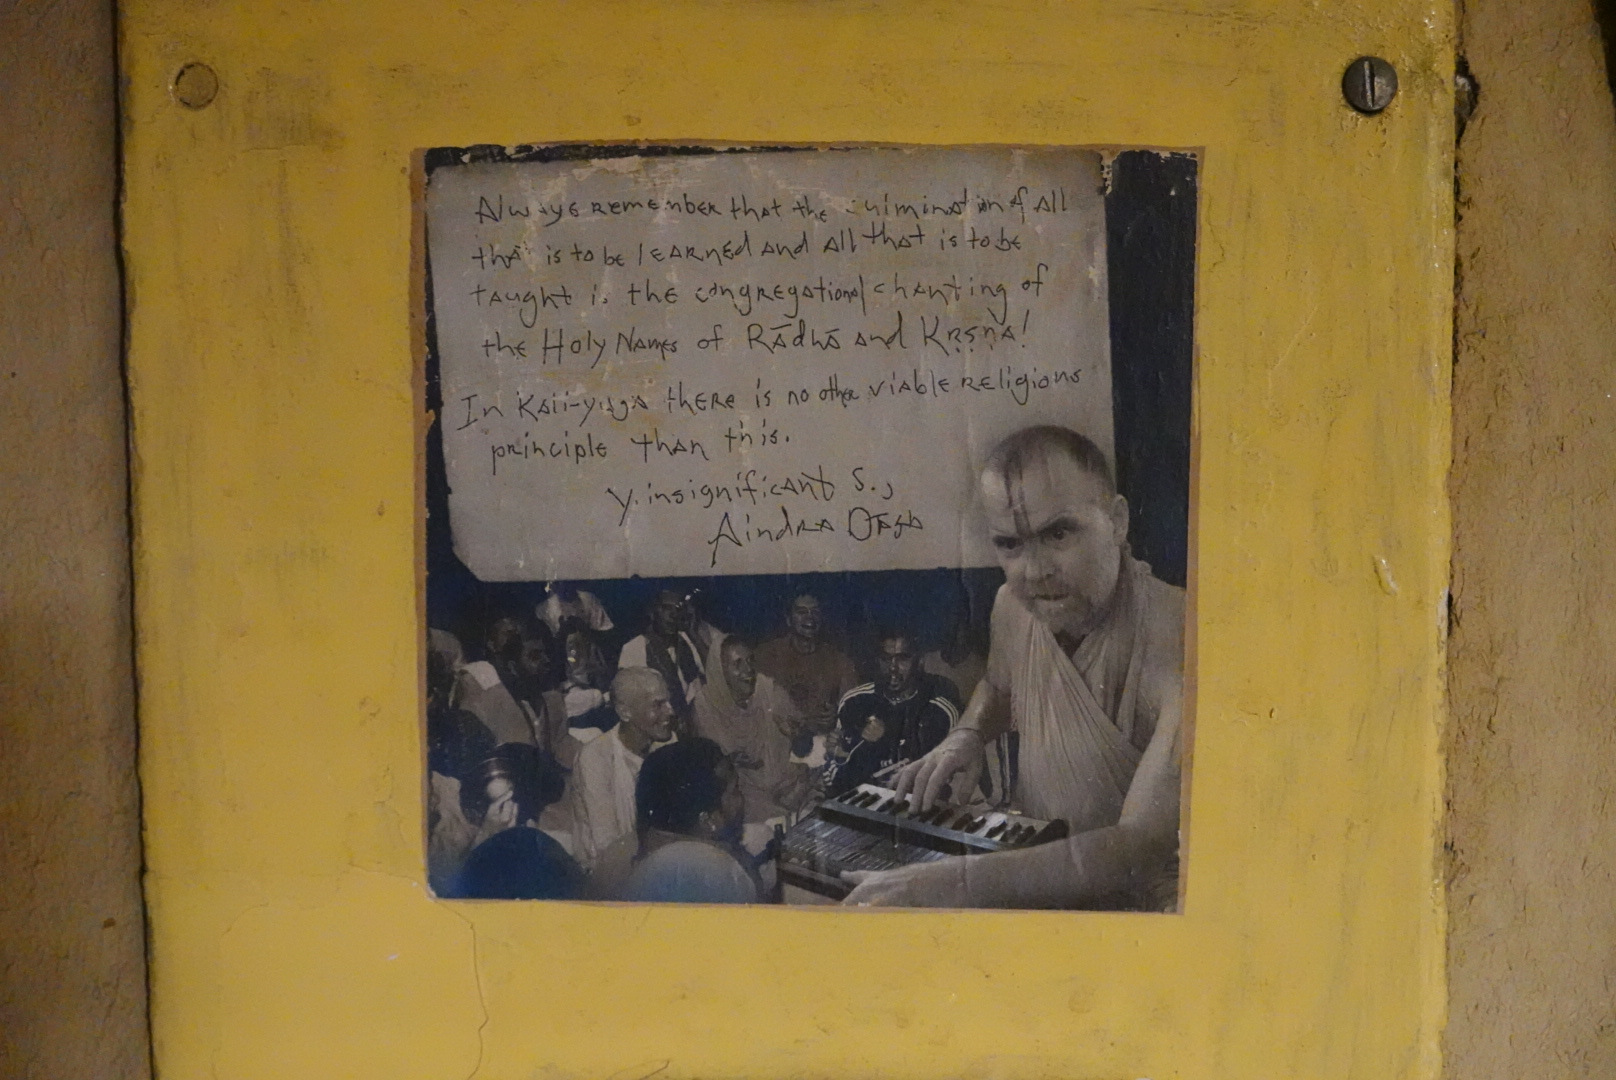 Always remember that the culmination of all
that is to be learned and all that is to be
taught is the congregational chanting of
the Holy Names of Rādhā and Kṛṣṇa!
In Kali-yuga there is no other viable religious
principle than this.
y. insignificant s.,
Aindra Dāsa